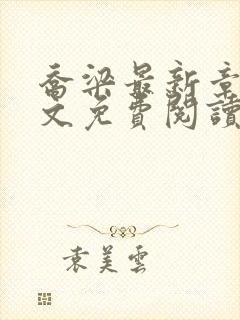 喬梁最新章
文免費閱讀
袁美雲